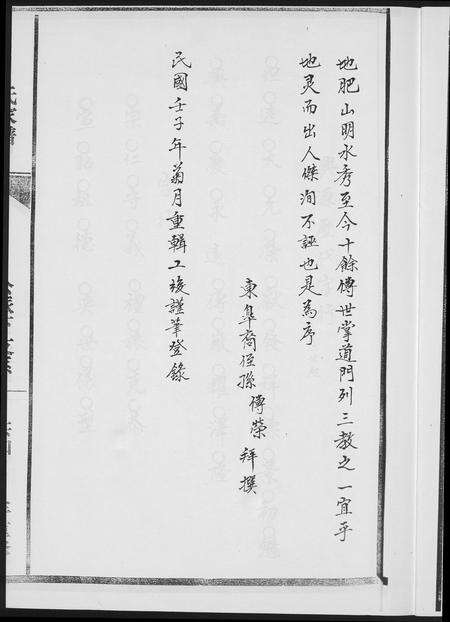 地肥山明水秀至今十餘傳世掌道門列三教之一宜乎
地灵而出人傑洵不誣也是為序
東皐裔侄孫傳榮拜撰
民國壬子年菊月重輯工竣謹筆登錄